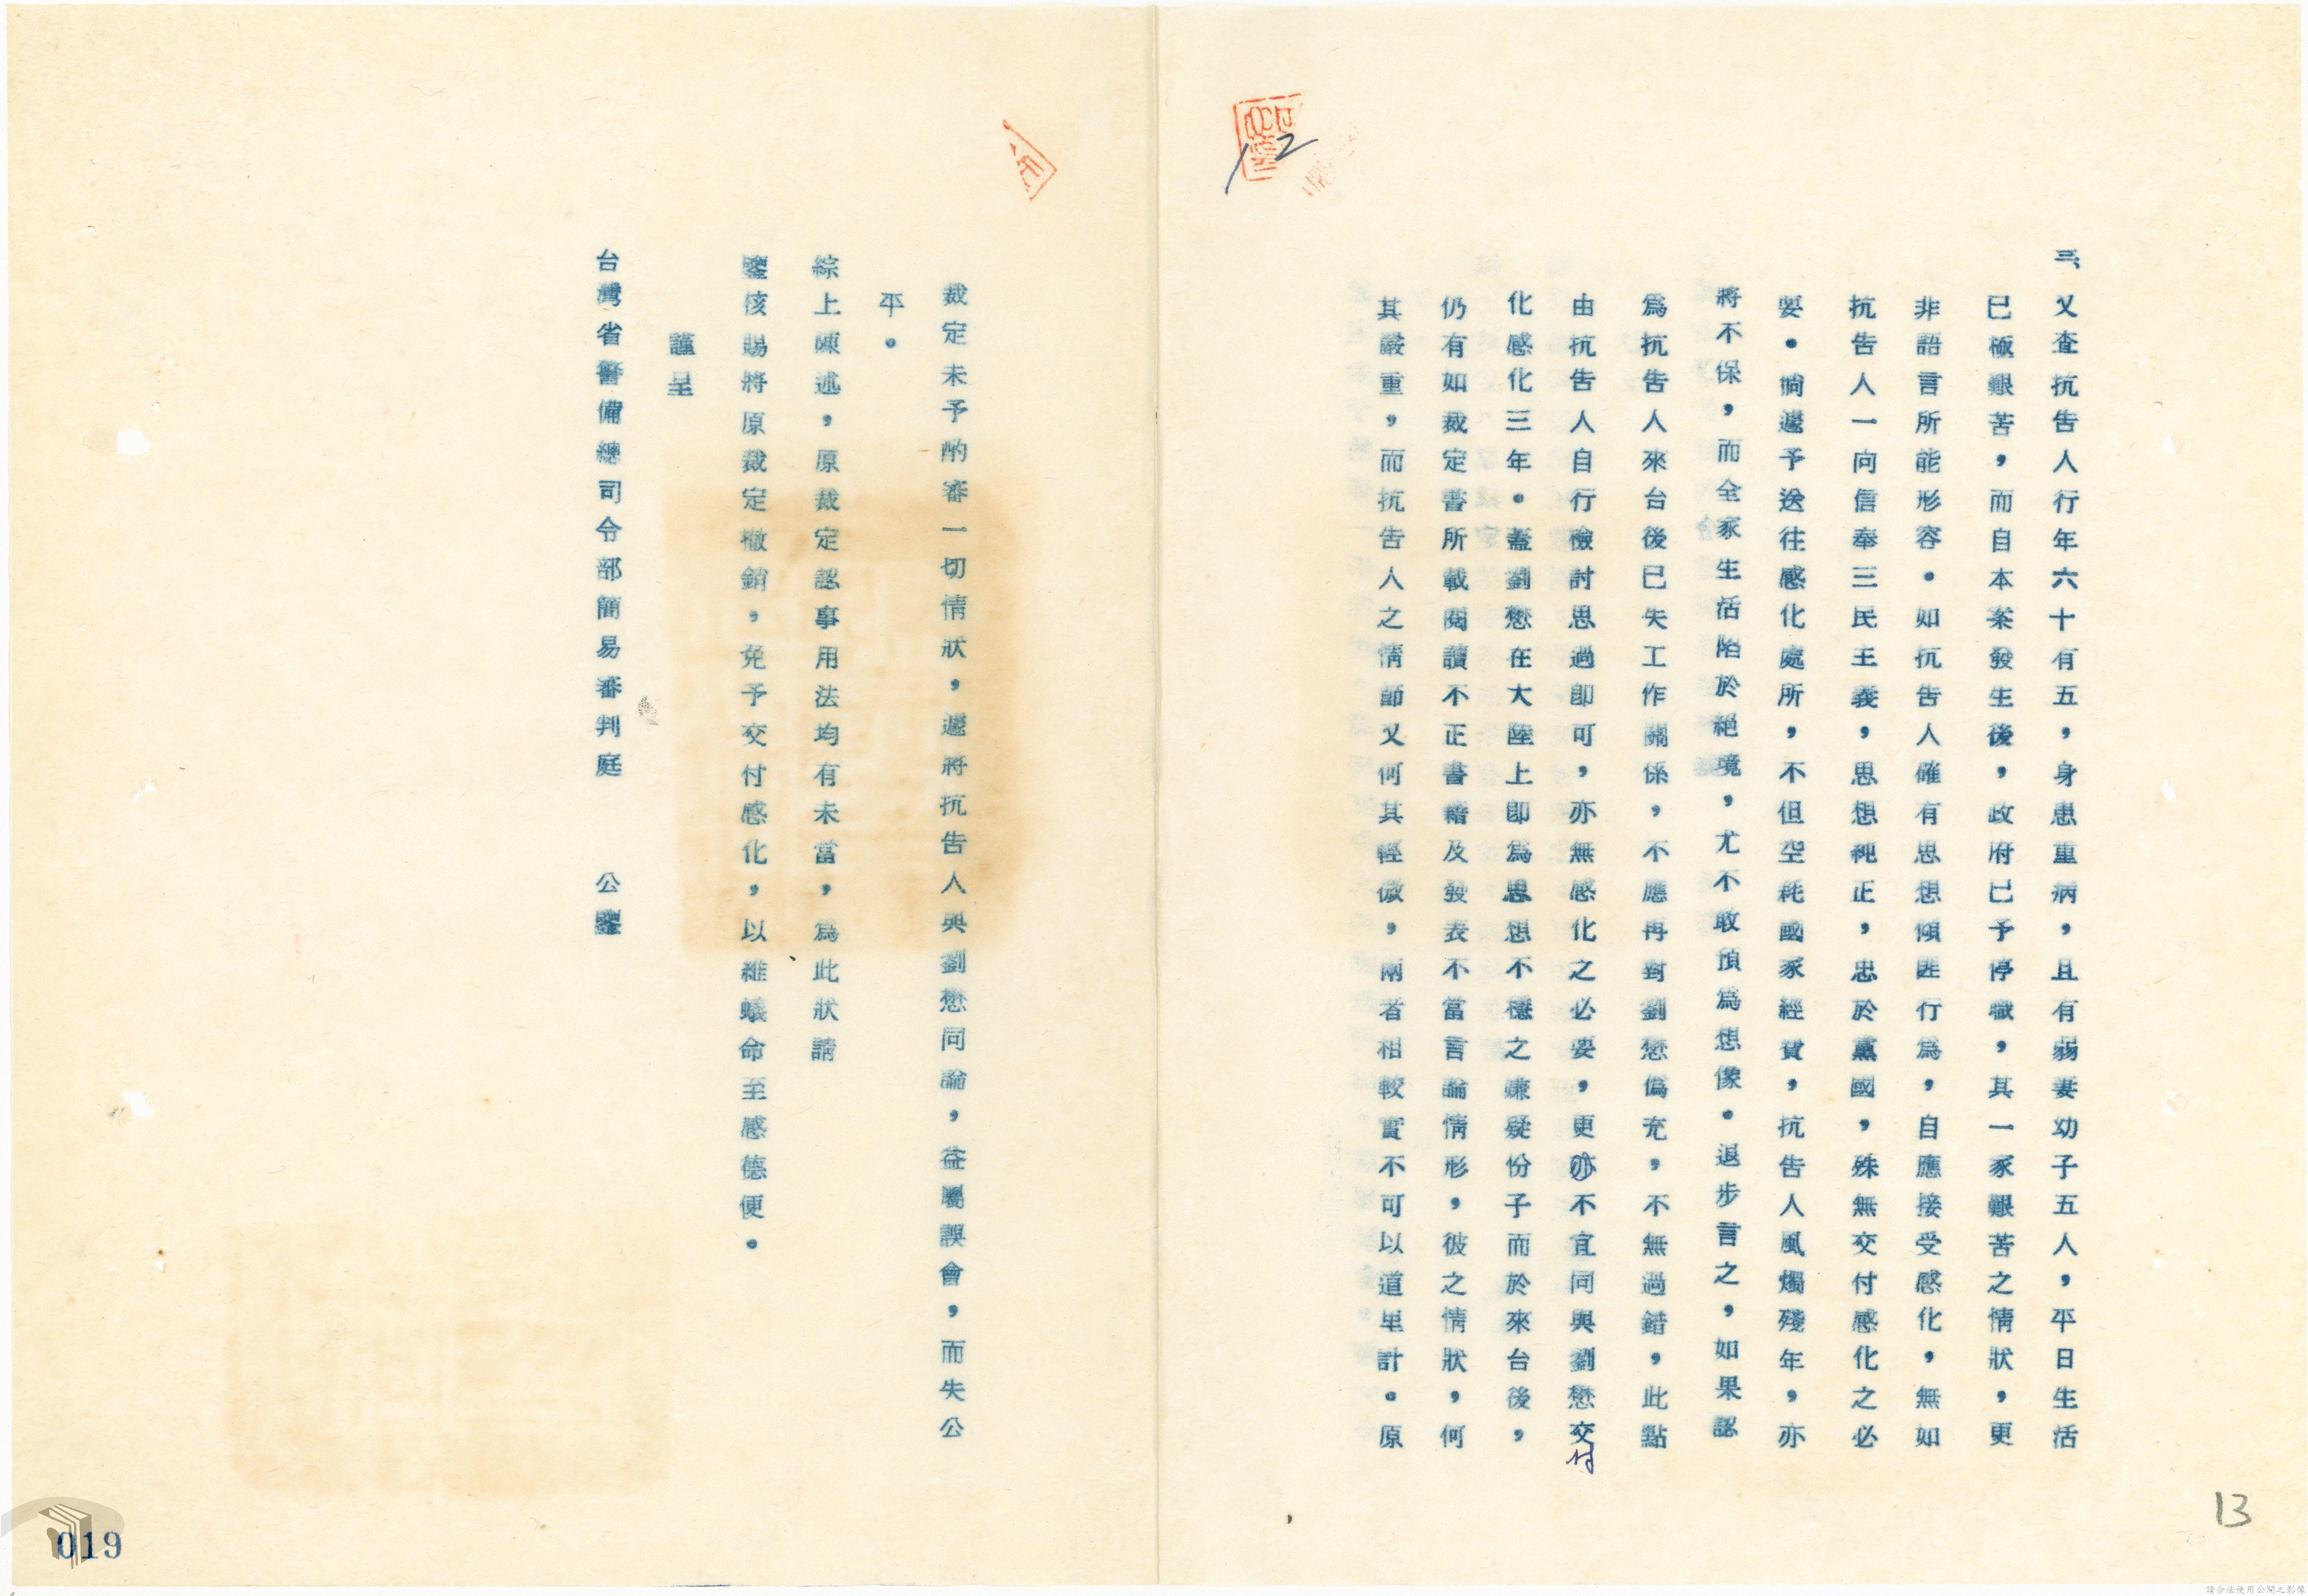 12
三、又查抗告人行年六十有五，身患重病，且有弱妻幼子五人，平日生活
已極艱苦，而自本案發生後，政府已予停職，其一家艱苦之情狀，更
非語言所能形容。如抗告人確有思想傾匪行為，自應接受感化，無如
抗告人一向信奉三民主義，思想純正，忠於黨國，殊無交付感化之必
要。倘遽予送往感化處所，不但空耗國家經費，抗告人風燭殘年，亦
將不保，而全家生活陷於絕境，尤不敢預為想像。退步言之，如果認
為抗告人來台後已失工作關係，不應再對劉懋偽充，不無過錯，此點
由抗告人自行檢討思過卽可，亦無感化之必要，更亦不宜同與劉懋交付
化感化三年。蓋劉懋在大陸上卽為思想不穩之嫌疑份子而於來台後，
仍有如裁定書所載閱讀不正書籍及發表不當言論情形，彼之情狀，何
其嚴重，而抗告人之情節又何其輕微，兩者相較實不可以道里計。原
裁定未予酌審一切情狀，遽將抗告人與劉懋同論，益屬誤會，而失公
平。
綜上陳述，原裁定認事用法均有未當，為此狀請
鑒核賜將原裁定撤銷，免予交付感化，以維蟻命至感德便。
謹呈
台灣省警備總司令部簡易審判庭　公鑒
13
019
請合法使用公開之影像